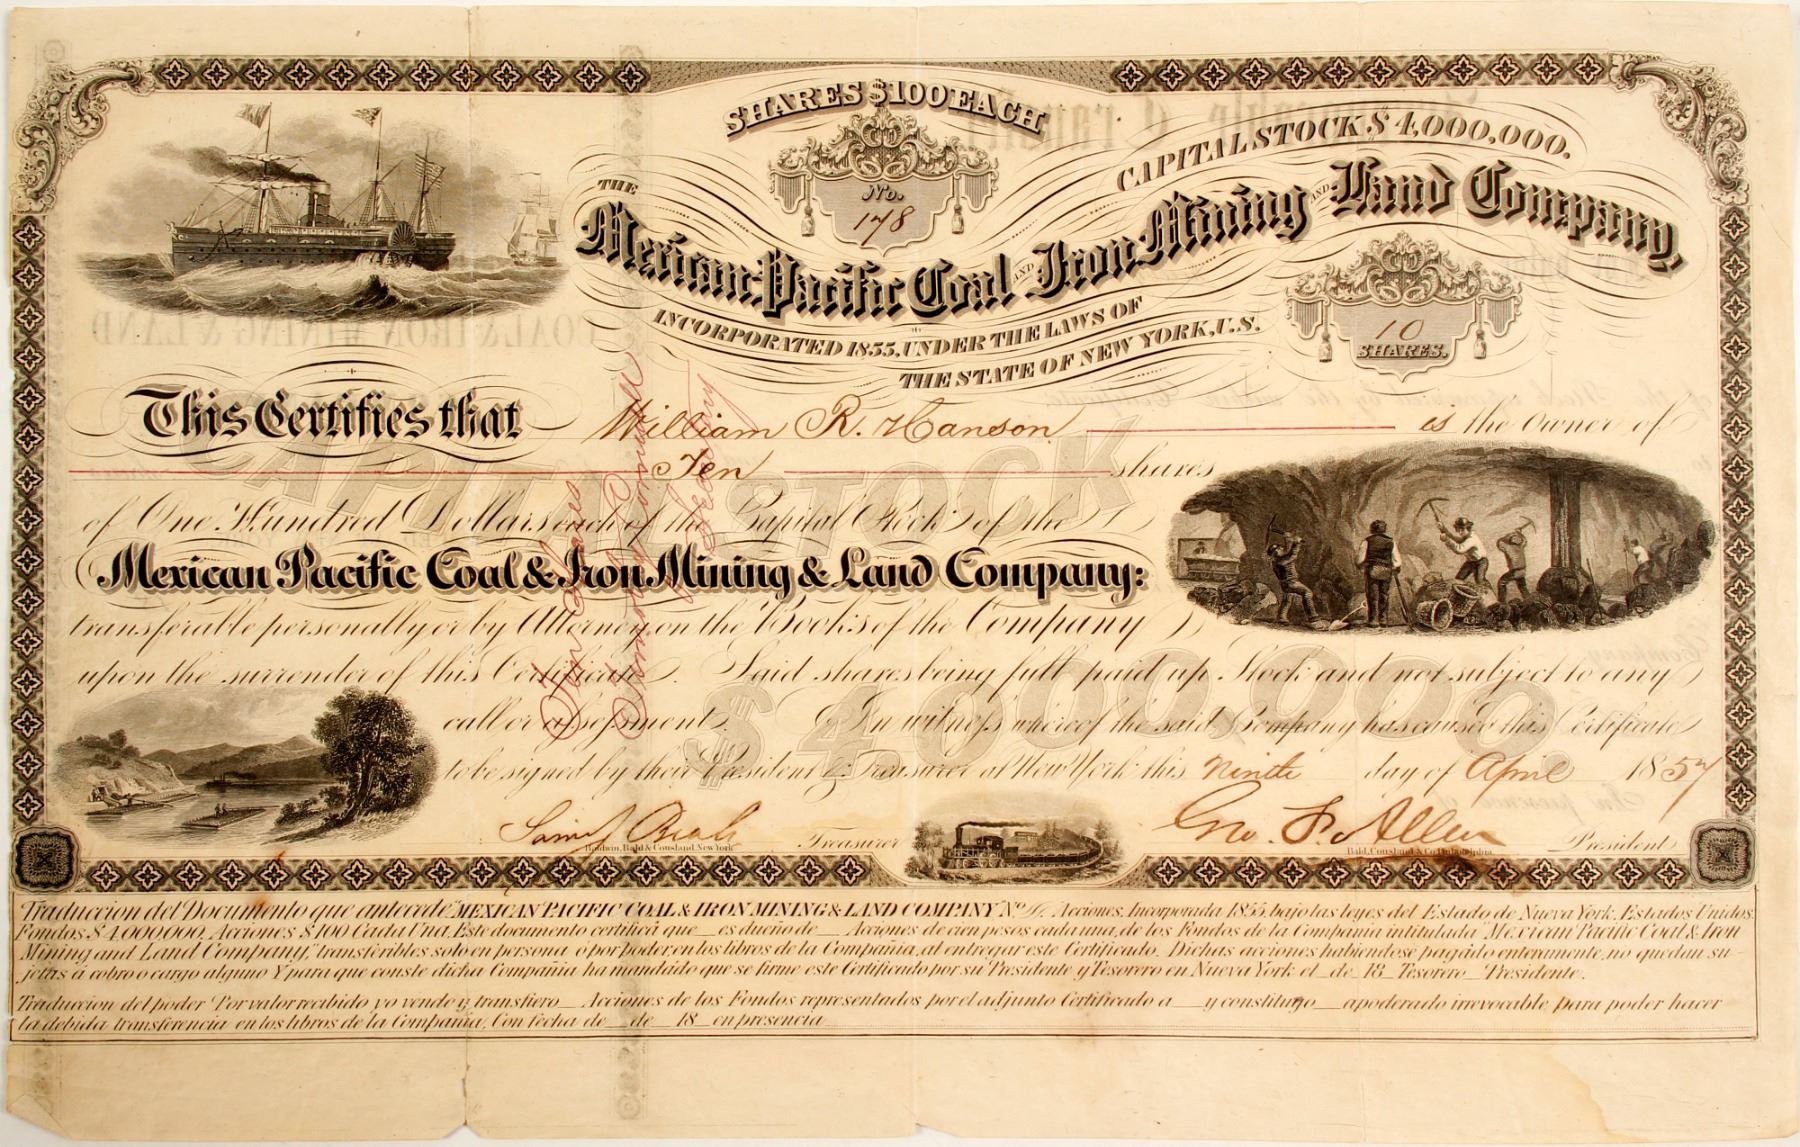 SHARES $100 EACH
CAPITAL STOCK $4,000,000.
No.
178
THE
Mexican-Pacific Coal AND Iron-Mining AND Land Company,
INCORPORATED 1855, UNDER THE LAWS OF
THE STATE OF NEW YORK, U.S.
10
SHARES.
This Certifies that William R. Hanson is the Owner of
Ten shares
of One Hundred Dollars each of the Capital Stock of the
Mexican Pacific Coal & Iron Mining & Land Company:
transferable personally or by Attorney, on the Books of the Company
upon the surrender of this Certificate. Said shares being full paid up Stock and not subject to any
call or assessment. In witness whereof the said Company has caused this Certificate
to be signed by their President & Treasurer at New York this Ninth day of April 1857
Treasurer Geo. F. Allen President
Baldwin, Bald & Cousland, New York
Bald, Cousland & Co. Philadelphia
CAPITAL STOCK
$4,000,000.
Ten Shares
Traduccion del Documento que antecede "MEXICAN PACIFIC COAL & IRON MINING & LAND COMPANY Nº Acciones. Incorporada 1855 bajo las leyes del Estado de Nueva York, Estados Unidos.
Fondos $4,000,000. Acciones $100 Cada Una. Este documento certifica que __ es dueño de __ Acciones de cien pesos cada una, de los Fondos de la Compañia intitulada "Mexican Pacific Coal & Iron
Mining and Land Company," transferibles solo en persona ó por poder, en los libros de la Compañia, al entregar este Certificado. Dichas acciones habiendose pagado enteramente, no quedan su-
jetas á cobro o cargo alguno Y para que conste dicha Compañia ha mandado que se firme este Certificado por su Presidente y Tesorero en Nueva York el __ de 18 __ Tesorero __ Presidente.
Traduccion del poder Por valor recibido yo vendo y transfiero __ Acciones de los Fondos representados por el adjunto Certificado a __ y constituyo __ apoderado irrevocable para poder hacer
la debida transferencia en los libros de la Compañia. Con fecha de __ de 18 __ en presencia